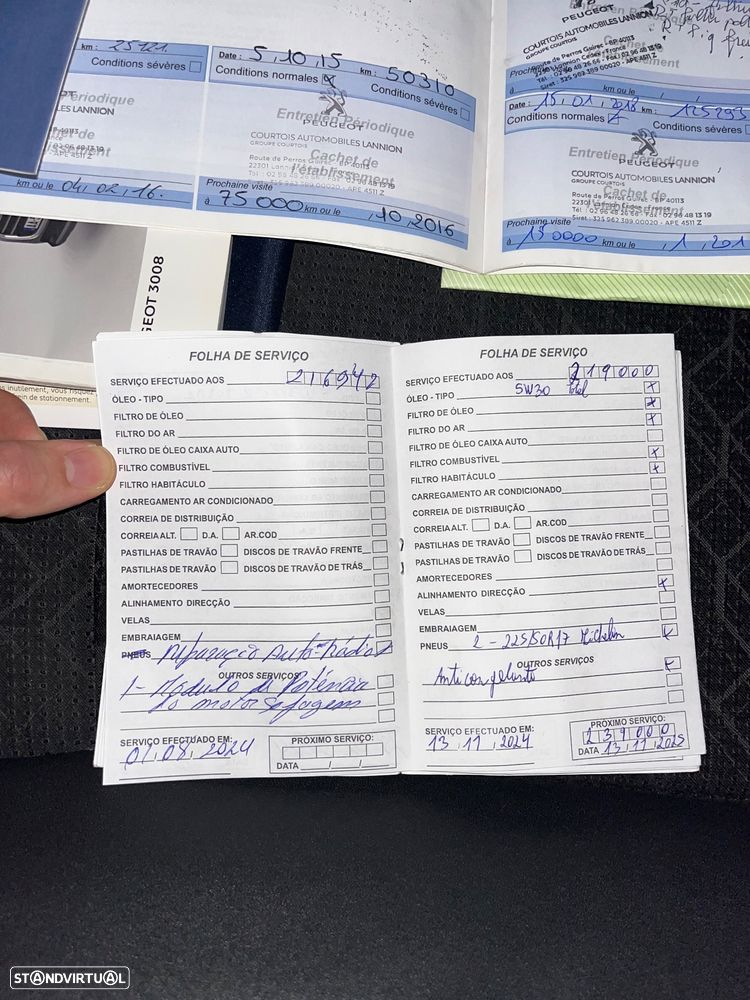 km : 25121
Conditions sévères
Périodique
LES LANNION
BP 40113
Cachet de
2 96 48 13 19
APE 4511 Z
km ou le 04, 02, 16.
Date : 5, 10, 15 km : 50310
Conditions normales x Conditions sévères
Entretien Périodique
PEUGEOT
COURTOIS AUTOMOBILES LANNION
GROUPE COURTOIS
Cachet de
l'établissement
Route de Perros
Prochaine visite
à 75 000 km ou le , 10, 2016
PEUGEOT
COURTOIS AUTOMOBILES LANNION
Route de Perros Guirec - BP 40113
Prochaine
km ou le
Date : 15, 01, 2018 km : 125293
Conditions normales Conditions sévères
Entretien Périodique
PEUGEOT
COURTOIS AUTOMOBILES LANNION
GROUPE COURTOIS
Cachet de
l'établissement
Route de Perros Guirec - BP 40113
Tél : 02 96 48 26 66 - Fax : 02 96 48 13 19
Prochaine visite
à 150000 km ou le , 1, 201
EOT 3008
FOLHA DE SERVIÇO
SERVIÇO EFECTUADO AOS 216942
ÓLEO - TIPO
FILTRO DE ÓLEO
FILTRO DO AR
FILTRO DE ÓLEO CAIXA AUTO
FILTRO COMBUSTÍVEL
FILTRO HABITÁCULO
CARREGAMENTO AR CONDICIONADO
CORREIA DE DISTRIBUIÇÃO
CORREIA ALT. D.A. AR.COD
PASTILHAS DE TRAVÃO DISCOS DE TRAVÃO FRENTE
PASTILHAS DE TRAVÃO DISCOS DE TRAVÃO DE TRÁS
AMORTECEDORES
ALINHAMENTO DIRECÇÃO
VELAS
EMBRAIAGEM
PNEUS Reparação Auto-Rádio
OUTROS SERVIÇOS
1 - Módulo de Potência
do motor sofagem
SERVIÇO EFECTUADO EM:
01, 08, 2024
PRÓXIMO SERVIÇO:
DATA / /
FOLHA DE SERVIÇO
SERVIÇO EFECTUADO AOS 219000
ÓLEO - TIPO 5W30 Total x
FILTRO DE ÓLEO x
FILTRO DO AR x
FILTRO DE ÓLEO CAIXA AUTO
FILTRO COMBUSTÍVEL x
FILTRO HABITÁCULO x
CARREGAMENTO AR CONDICIONADO
CORREIA DE DISTRIBUIÇÃO
CORREIA ALT. D.A. AR.COD
PASTILHAS DE TRAVÃO DISCOS DE TRAVÃO FRENTE
PASTILHAS DE TRAVÃO DISCOS DE TRAVÃO DE TRÁS
AMORTECEDORES
ALINHAMENTO DIRECÇÃO x
VELAS
EMBRAIAGEM
PNEUS 2 - 225/50R17 Michelin x
OUTROS SERVIÇOS
Anticongelante x
SERVIÇO EFECTUADO EM:
13, 11, 2024
PRÓXIMO SERVIÇO:
239000
DATA 13, 11, 2025
s inutilement, vous risquez
ein de stationnement.
STANDVIRTUAL